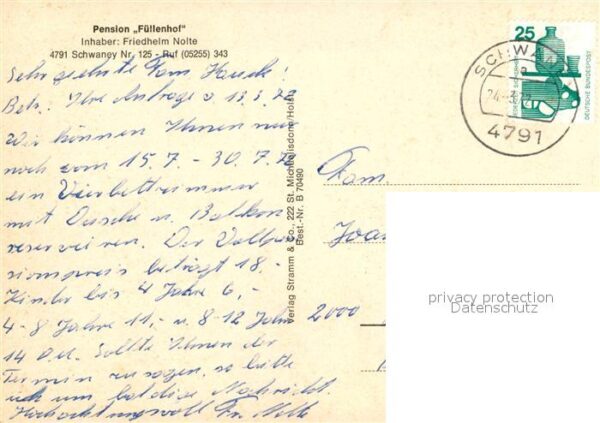 Pension „Füllenhof"
Inhaber: Friedhelm Nolte
4791 Schwaney Nr. 125 - Ruf (05255) 343
Sehr geehrte Fam. Hauck!
Betr.: Ihre Anfrage v. 13.3.72
Wir können Ihnen nur
noch vom 15.7. - 30.7.72
ein Vierbettzimmer
mit Dusche u. Balkon
reservieren. Der Vollpen
sionspreis beträgt 18,-
Kinder bis 4 Jahre 6,-
4-8 Jahre 11,- u. 8-12 Jahre
14 DM. Sollte Ihnen der
Termin zusagen, so bitte
ich um baldige Nachricht.
Hochachtungsvoll Fr. Nolte
Verlag Stramm & Co., 222 St. Michaelisdonn/Holst.
Best.-Nr. B 70490
25
DEUTSCHE BUNDESPOST
SCHWANEY
4791
Fam.
Joa
2000
privacy protection
Datenschutz